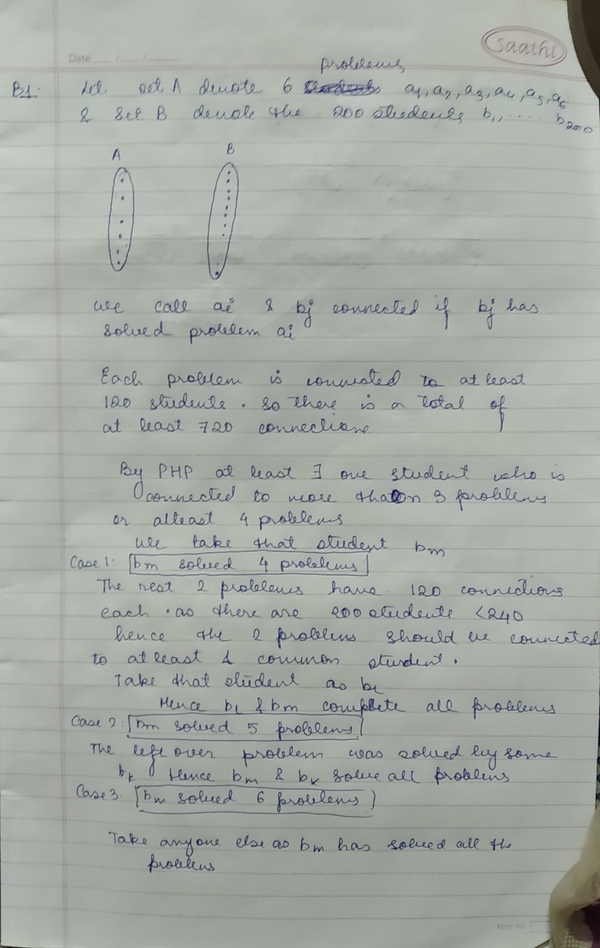 Date ___/___/___
Saathi
problems
B1. Let set A denote 6 a1, a2, a3, a4, a5, a6
& set B denote the 200 students b1, .... b200
A B
we call ai & bj connected if bj has
solved problem ai
Each problem is connected to at least
120 students. So there is a total of
at least 720 connections
By PHP at least ∃ one student who is
connected to more than 3 problems
or atleast 4 problems
we take that student bm
Case 1: bm solved 4 problems
The rest 2 problems have 120 connections
each. as there are 200 students < 240
hence the 2 problems should be connected
to at least 1 common student.
Take that student as bL
Hence bL & bm complete all problems
Case 2: bm solved 5 problems
The left over problem was solved by some
bk Hence bm & bk solve all problems
Case 3. bm solved 6 problems
Take anyone else as bm has solved all the
problems
Page No.